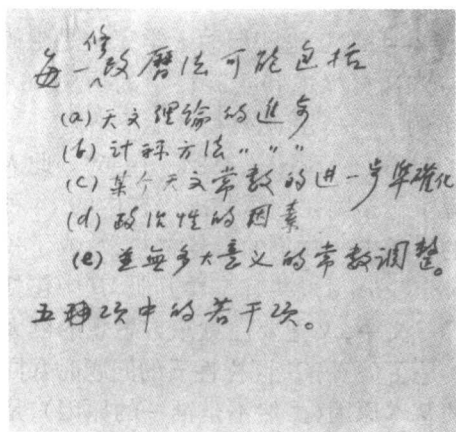 每一修改曆法可能包括
(a) 天文理論的進步
(b) 计祘方法〃〃〃
(c) 某个天文常数的进一步準確化
(d) 政治性的因素
(e) 並無多大意义的常数调整。
五种项中的若干项。